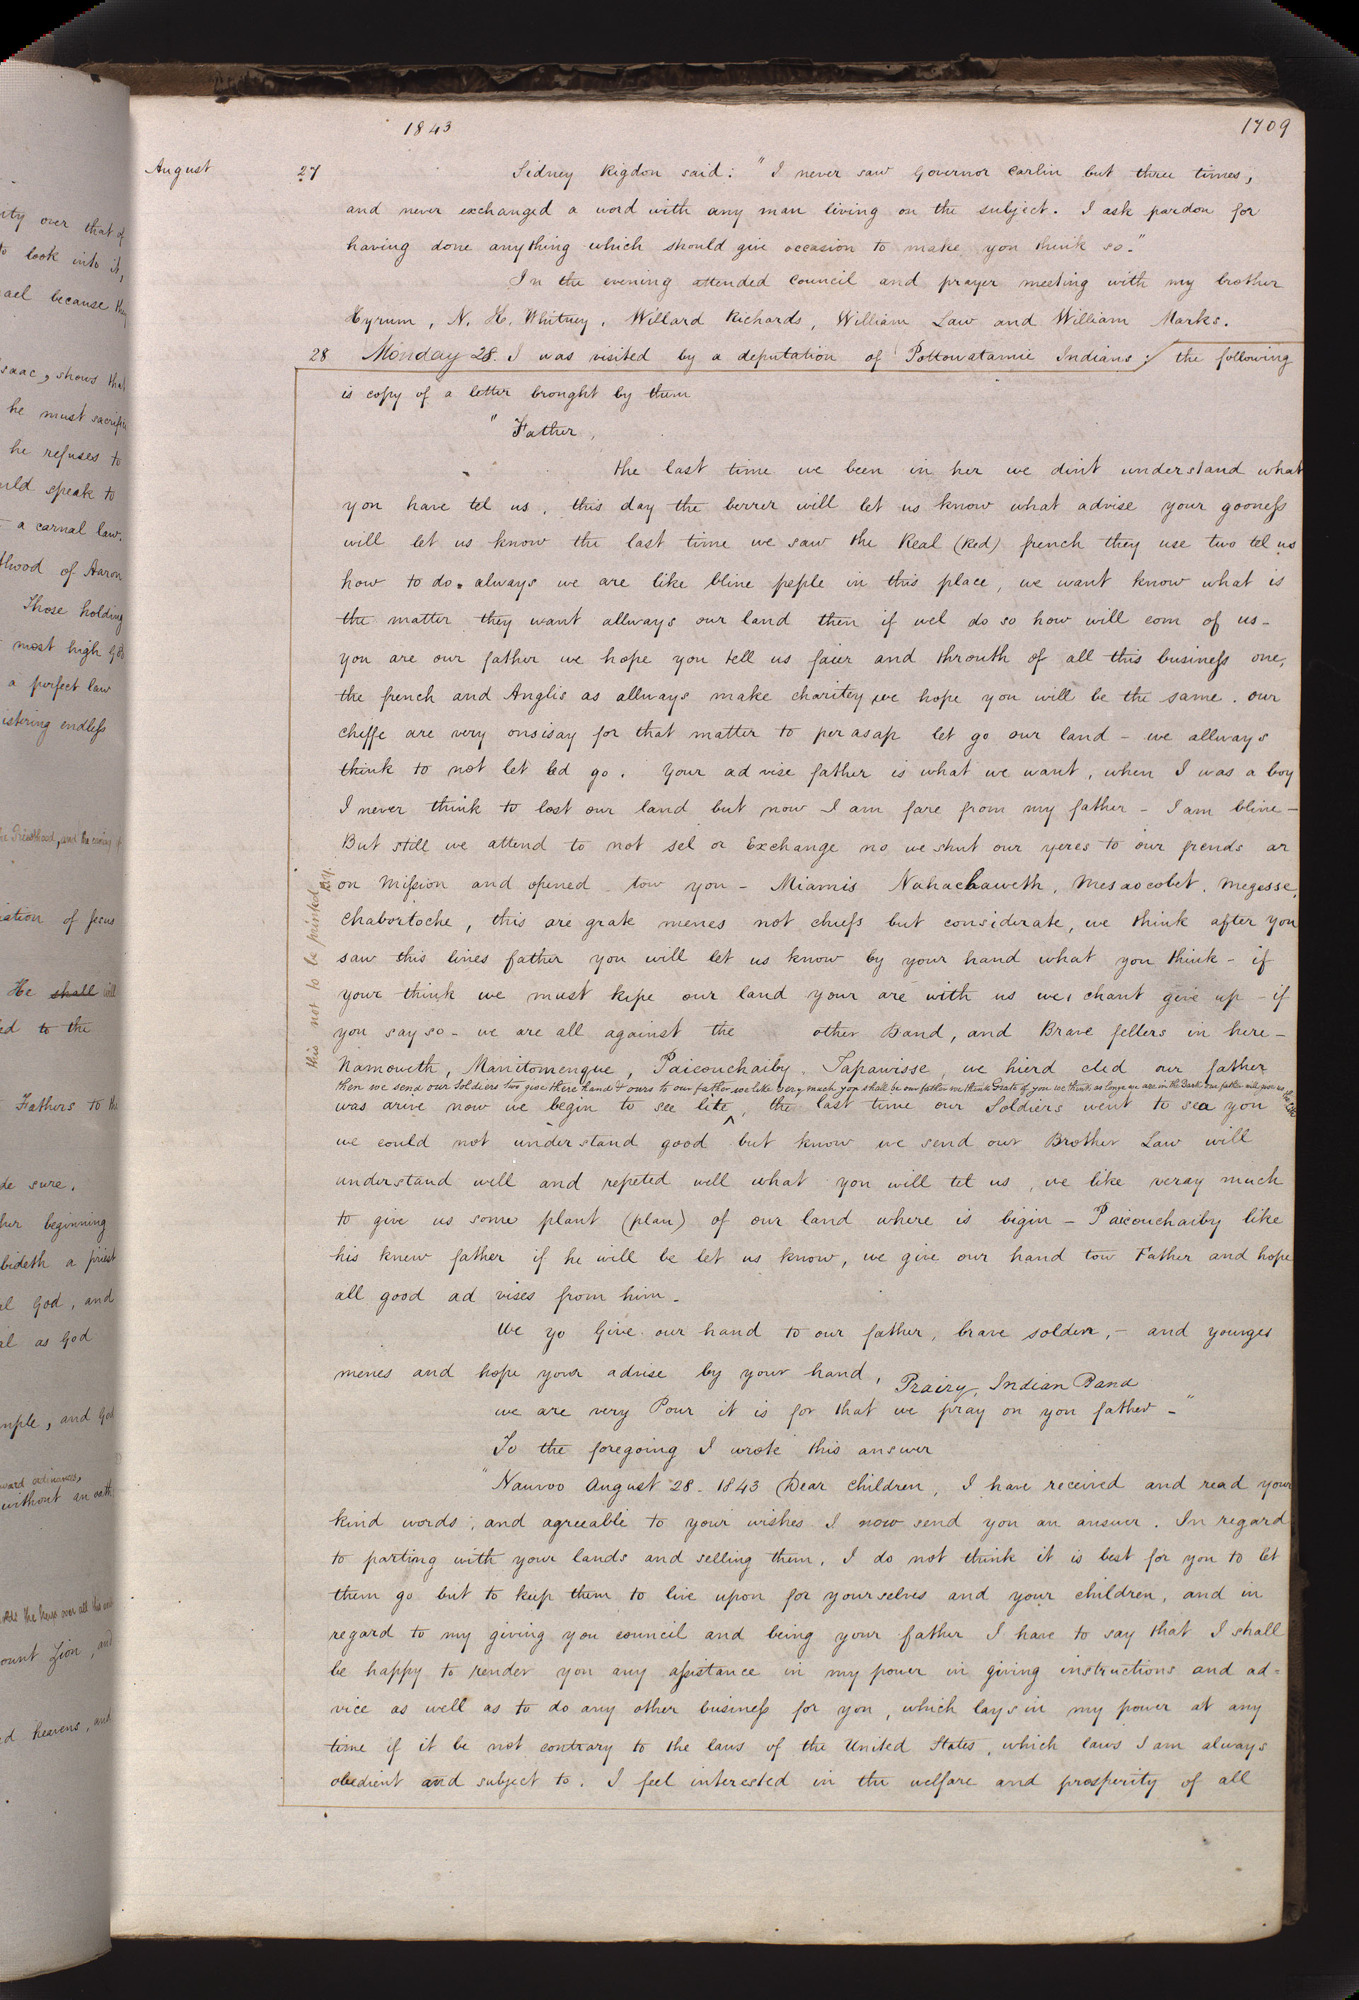 1843
1709
August 27 Sidney Rigdon said: "I never saw Governor Carlin but three times,
and never exchanged a word with any man living on the subject. I ask pardon for
having done anything which should give occasion to make you think so."
In the evening attended Council and prayer meeting with my brother
Hyrum, N. K. Whitney, Willard Richards, William Law and William Marks.
28 Monday 28. I was visited by a deputation of Pottowatamie Indians; the following
is copy of a letter brought by them
"Father,
the last time we been in her we dint understand what
you have tel us, this day the berrer will let us know what advise your gooness
will let us know the last time we saw the Real (Red) french they use two tel us
how to do. always we are like bline peple in this place, we want know what is
the matter they want allways our land then if wel do so how will com of us -
you are our father we hope you tell us faier and throuth of all this business one,
the french and Anglis as allways make charitey we hope you will be the same. our
cheffe are very onsisay for that matter to per asap let go our land - we allways
think to not let led go. Your ad vise father is what we want, when I was a boy
I never think to lost our land but now I am fare from my father - I am bline -
But still we attend to not sel or Exchange no we shut our yeres to our frends ar
on Mission and opened tow you - Miamis Nahachaweth, Mesaocobet, Megesse,
Chabortoche, this are grate menes not chiefs but considerate, we think after you
saw this lines father you will let us know by your hand what you think - if
your think we must kepe our land your are with us we, chant give up - if
you say so - we are all against the other Band, and Brave fellers in here -
Namoweth, Manitomengue, Paicouchaiby. Tapawisse, we hierd cled our father
then we send our Soldiers two give there hand & ours to our father we like very much you shall be our father we think Grate of you we think as longe we are in the Dark our father will give us
was arive now we begin to see lite ^, the last time our Soldiers went to sea you
we could not understand good but know we send our Brother Law will
understand well and repeted well what you will tel us, we like veray much
to give us some plant (plan) of our land where is bigin - Paicouchaiby like
his knew father if he will be let us know, we give our hand tow Father and hope
all good ad vises from him -
We yo Give our hand to our father, brave soldier, - and younges
menes and hope your advise by your hand, Prairy, Indian Band
we are very Pour it is for that we pray on you father -"
To the foregoing I wrote this answer
"Nauvoo August 28. 1843 Dear Children, I have received and read your
kind words, and agreeable to your wishes I now send you an answer. In regard
to parting with your lands and selling them, I do not think it is best for you to let
them go but to keep them to live upon for yourselves and your children, and in
regard to my giving you council and being your father I have to say that I shall
be happy to render you any assistance in my power in giving instructions and ad=
vice as well as to do any other business for you, which lays in my power at any
time if it be not contrary to the laws of the United States, which laws I am always
obedient and subject to. I feel interested in the welfare and prosperity of all
this not to be printed
B.Y.
ity over that of
to look into it,
ael because they
saac, shows that
he must sacrifice
he refuses to
uld speak to
a carnal law.
thood of Aaron
Those holding
most high God
a perfect law
istering endless
the Priesthood, and the coming of
iation of Jesus
He shall will
ed to the
Fathers to the
de sure.
her beginning
bideth a priest
al God, and
al as God
mple, and God
ward ordinances,
without an oath
holds the keys over all this world
ount Zion, and
d heavens, and